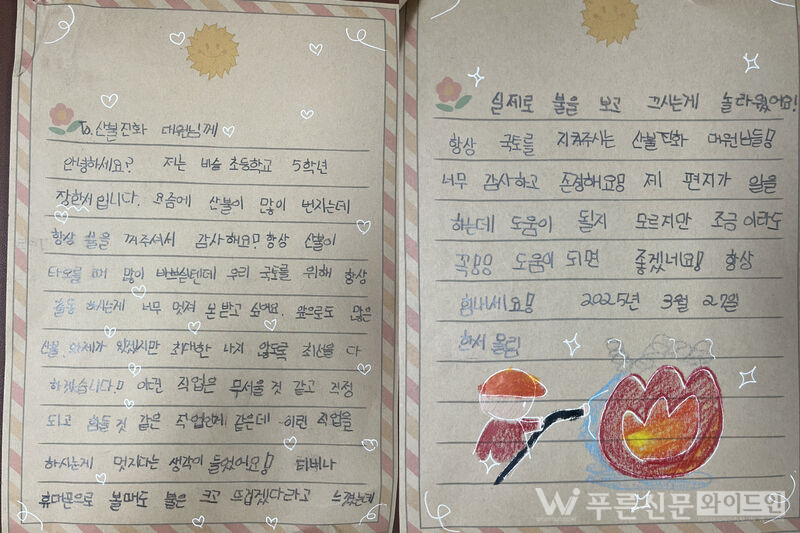 To. 산불진화 대원님께
안녕하세요? 저는 비슬 초등학교 5학년
장한서입니다. 요즘에 산불이 많이 번지는데
항상 불을 꺼주셔서 감사해요! 항상 산불이
타오를 때 많이 바쁘실텐데 우리 국토를 위해 항상
출동 하시는게 너무 멋져 본받고 싶네요. 앞으로도 많은
산불, 화제가 있겠지만 최대한 나지 않도록 최선을 다
하겠습니다!! 이런 직업은 무서울 것 같고 걱정
되고 힘들 것 같은 직업인게 같은데 이런 직업을
하시는게 멋지다는 생각이 들었어요!! 티비나
휴대폰으로 볼때도 불은 크고 뜨겁겠다라고 느꼈는데
실제로 불을 보고 끄시는게 놀라웠어요!
항상 국토를 지켜주시는 산불진화 대원님들!!
너무 감사하고 존경해요!! 제 편지가 일을
하는데 도움이 될지 모르지만 조금이라도
꼭!!! 도움이 되면 좋겠네요!! 항상
힘내세요!! 2025년 3월 27일
한서 올림
Wi 푸른신문 와이드인